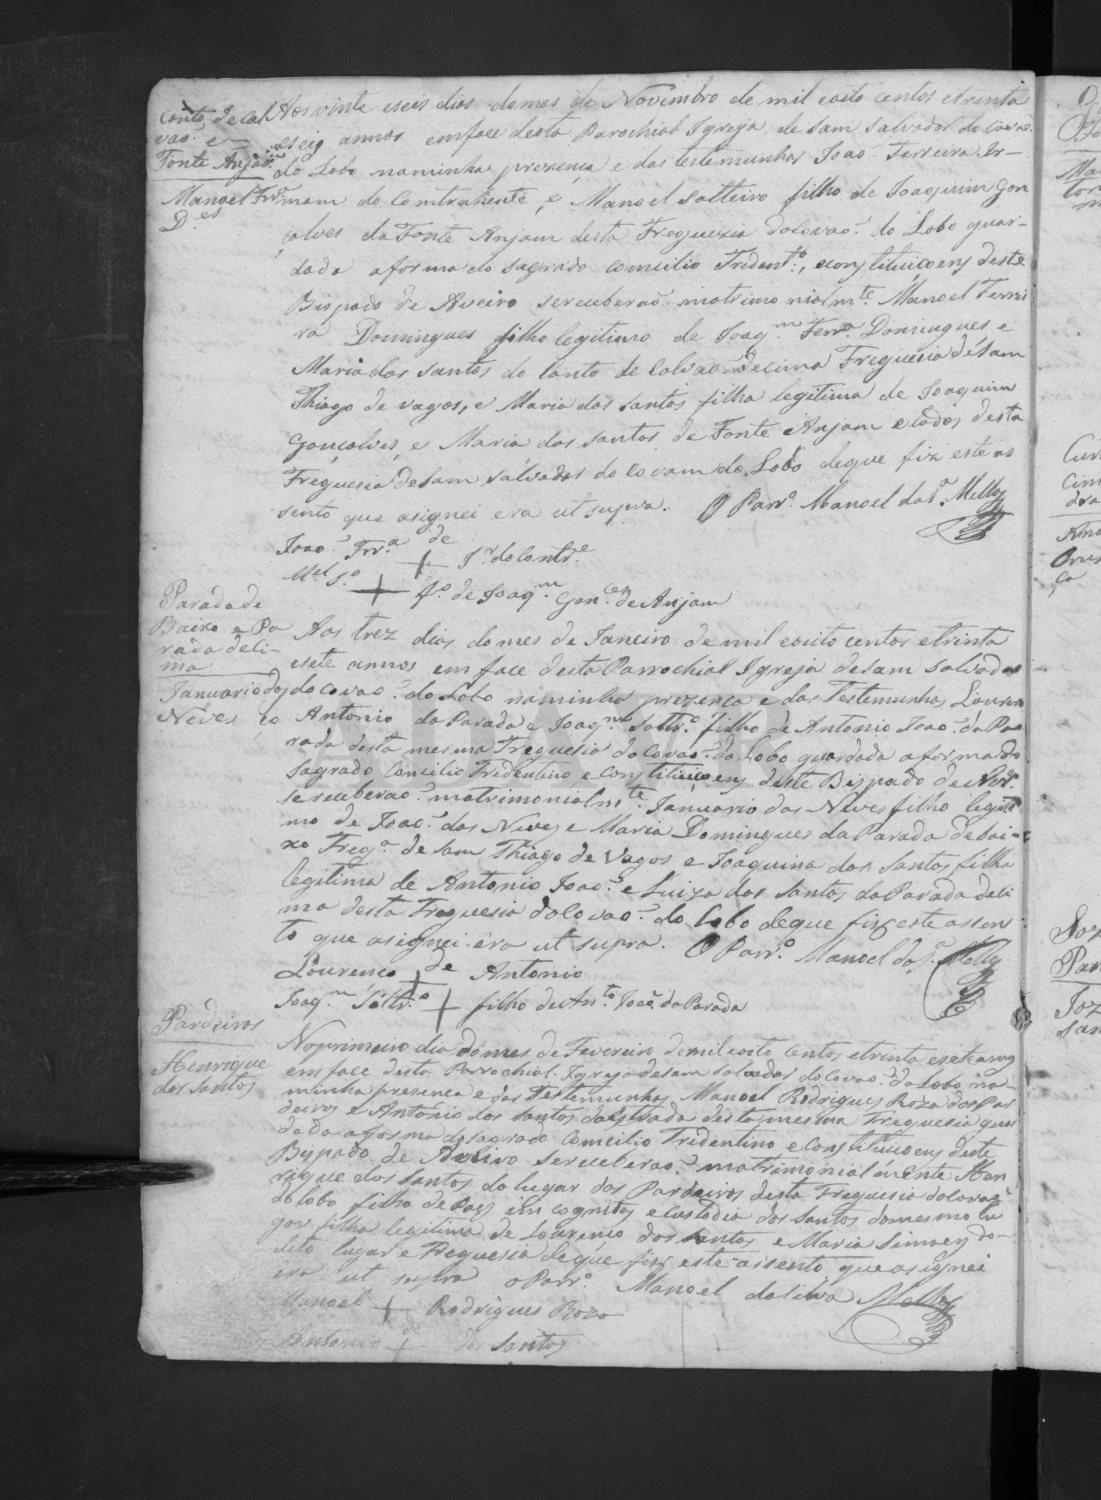 Canto de Cal
vaõ e
Fonte Anjaõ
Manoel Frr.ª
D.es
Aos vinte eseis dias domes de Novembro de mil eoito centos etrinta
eseis annos emface desta Parochial Igreja de Sam Salvador do Covaõ
do Lobo naminha prezença e das testemunhas Joao Ferreira Ir-
mam do Contrahente, e Manoel Solteiro filho de Joaquim Gon
çalves da Fonte Anjam desta Freguezia doCovaõ do Lobo guar-
dada aforma do Sagrado Concilio Trident.º, econstituicoens deste
Bispado de Aveiro sereceberaõ matrimonialm.te Manoel Ferrei
ra Domingues filho legitimo de Joaq.m Ferr.ª Domingues, e
Maria dos Santos do Canto de Calvaõ decima Freguesia de Sam
Thiago de Vagos, e Maria dos Santos filha legitima de Joaquim
Gonçalves, e Maria dos Santos de Fonte Anjam etodos desta
Freguesia deSam Salvador do Covam do Lobo deque fiz este as
sento que asignei era ut supra. O Parr.º Manoel da S.ª Mello
Joaõ Frr.ª de + Ir. do Contr.e
M.el S.º + f.º de Joaq.m Gon.ces de Anjam
Parada de
Baixo e Pa
rada deli-
ma
Januario das
Neves
Aos trez dias domes de Janeiro de mil eoito centos etrinta
esete annos em face desta Parrochial Igreja deSam Salvador
do Covaõ do Lobo naminha prezença e das Testemunhas Lourenço
Antonio da Parada e Joaq.m Soltr.º filho de Antonio Joaõ da Pa
rada desta mesma Freguesia do Covaõ do Lobo guardada aforma do
Sagrado Concilio Tridentino, e Constituicoens deste Bispado de Avr.º
sereceberaõ matrimonialm.te Januario das Neves filho legiti
mo de Joaõ das Neves e Maria Domingues da Parada debai-
xo Freg.ª de Sam Thiago de Vagos e Joaquina dos Santos filha
legitima de Antonio Joaõ e Luiza dos Santos da Parada deli
ma desta Freguesia doCovaõ do Lobo deque fiz este assen
to que asignei era ut supra. O Parr.º Manoel da S.ª Mello
Lourenço de + Antonio
Joaq.m Soltr.º + filho de An.to Joaõ da Parada
Pardeiros
Henrique
dos Santos
No primeiro dia domes de Fevereiro demileoito Centos etrinta esete annos
emface desta Parrochial Igreja desam Salvador doCovaõ do Lobo na-
minha prezença e das Testemunhas Manoel Rodrigues Roza dos Par
deiros e António dos Santos da Estrada desta mesma Freguesia guar
dada aforma dosagrado Concilio Tridentino e Constituicoens deste
Bispado de Aveiro sereceberaõ matrimonialmente Hen
rique dos Santos do lugar dos Pardeiros desta Freguesia doCovaõ
do Lobo filho de Pays incognitos e Custodia dos Santos domesmo lu
gar filha legitima de Lourenço dos Santos e Maria Simoens do-
dito lugar e Freguesia deque fiz este assento que asignei
era ut supra o Parr.º Manoel da Silva Mello
Manoel + Rodrigues Roza
Antonio + dos Santos